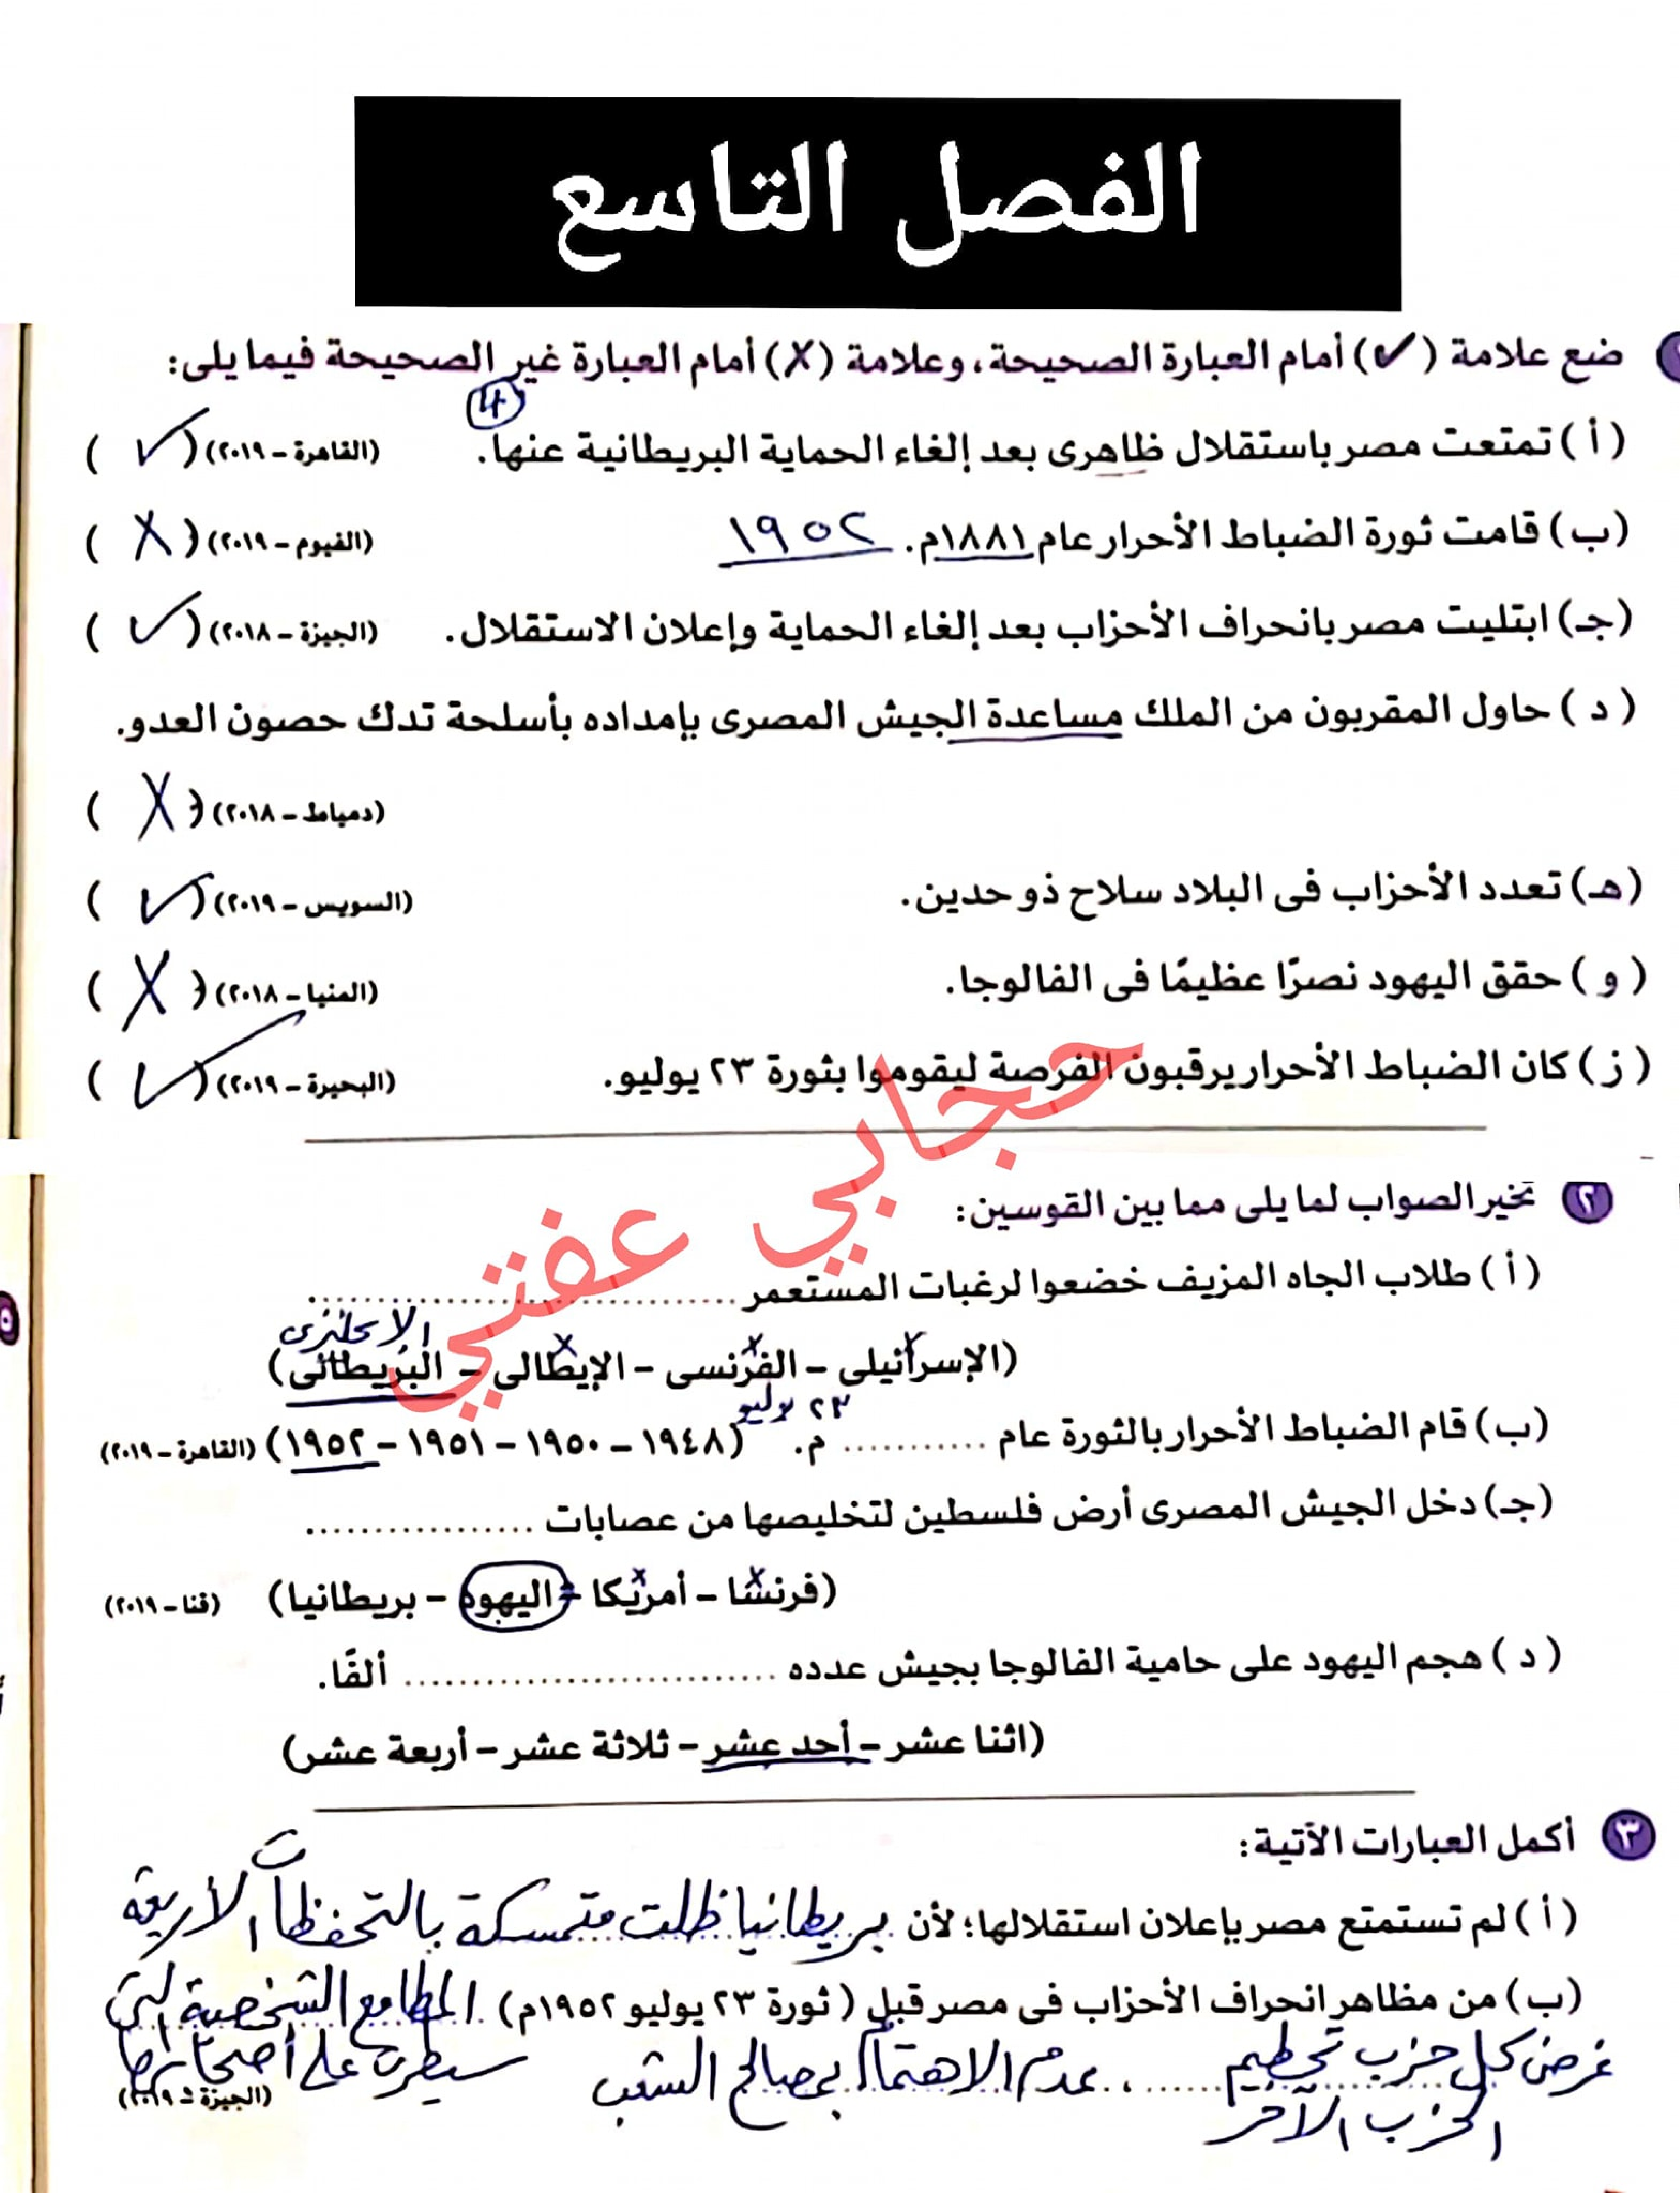 الفصل التاسع
ضع علامة (✓) أمام العبارة الصحيحة، وعلامة (X) أمام العبارة غير الصحيحة فيما يلى:
(أ) تمتعت مصر باستقلال ظاهرى بعد إلغاء الحماية البريطانية عنها. (القاهرة - ٢٠١٩) ( ✓ )
(ب) قامت ثورة الضباط الأحرار عام ١٨٨١م. ١٩٥٢ (الفيوم - ٢٠١٩) ( X )
(جـ) ابتليت مصر بانحراف الأحزاب بعد إلغاء الحماية وإعلان الاستقلال. (الجيزة - ٢٠١٨) ( ✓ )
(د) حاول المقربون من الملك مساعدة الجيش المصرى بإمداده بأسلحة تدك حصون العدو.
(دمياط - ٢٠١٨) ( X )
(هـ) تعدد الأحزاب فى البلاد سلاح ذو حدين. (السويس - ٢٠١٩) ( ✓ )
(و) حقق اليهود نصرًا عظيمًا فى الفالوجا. (المنيا - ٢٠١٨) ( X )
(ز) كان الضباط الأحرار يرقبون الفرصة ليقوموا بثورة ٢٣ يوليو. (البحيرة - ٢٠١٩) ( ✓ )
حجابي عفتي
٢ تخير الصواب لما يلى مما بين القوسين:
(أ) طلاب الجاه المزيف خضعوا لرغبات المستعمر ..............................
الإنجليزى
(الإسرائيلى - الفرنسى - الإيطالى - البريطانى)
٢٣ يوليو
(ب) قام الضباط الأحرار بالثورة عام ............ م. (١٩٤٨ - ١٩٥٠ - ١٩٥١ - ١٩٥٢) (القاهرة - ٢٠١٩)
(جـ) دخل الجيش المصرى أرض فلسطين لتخليصها من عصابات .................
(فرنسا - أمريكا - اليهود - بريطانيا) (قنا - ٢٠١٩)
(د) هجم اليهود على حامية الفالوجا بجيش عدده .............................. ألفًا.
(اثنا عشر - أحد عشر - ثلاثة عشر - أربعة عشر)
٣ أكمل العبارات الآتية:
(أ) لم تستمتع مصر بإعلان استقلالها؛ لأن بريطانيا ظلت متمسكة بالتحفظات الأربعة
(ب) من مظاهر انحراف الأحزاب فى مصر قبل (ثورة ٢٣ يوليو ١٩٥٢م) المطامع الشخصية التى
سيطرت على أصحابها
غرض كل حزب تحطيم ، عدم الاهتمام بمصالح الشعب (الجيزة - ٢٠١٩)
الحزب الآخر